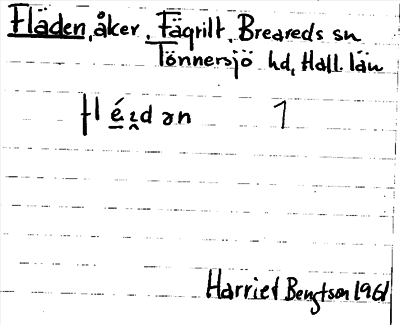 Fläden, åker, Fägrilt, Breareds sn
Tönnersjö hd, Hall. län
fl é̱ ı̯d ən 1
Harriet Bengtson 1961